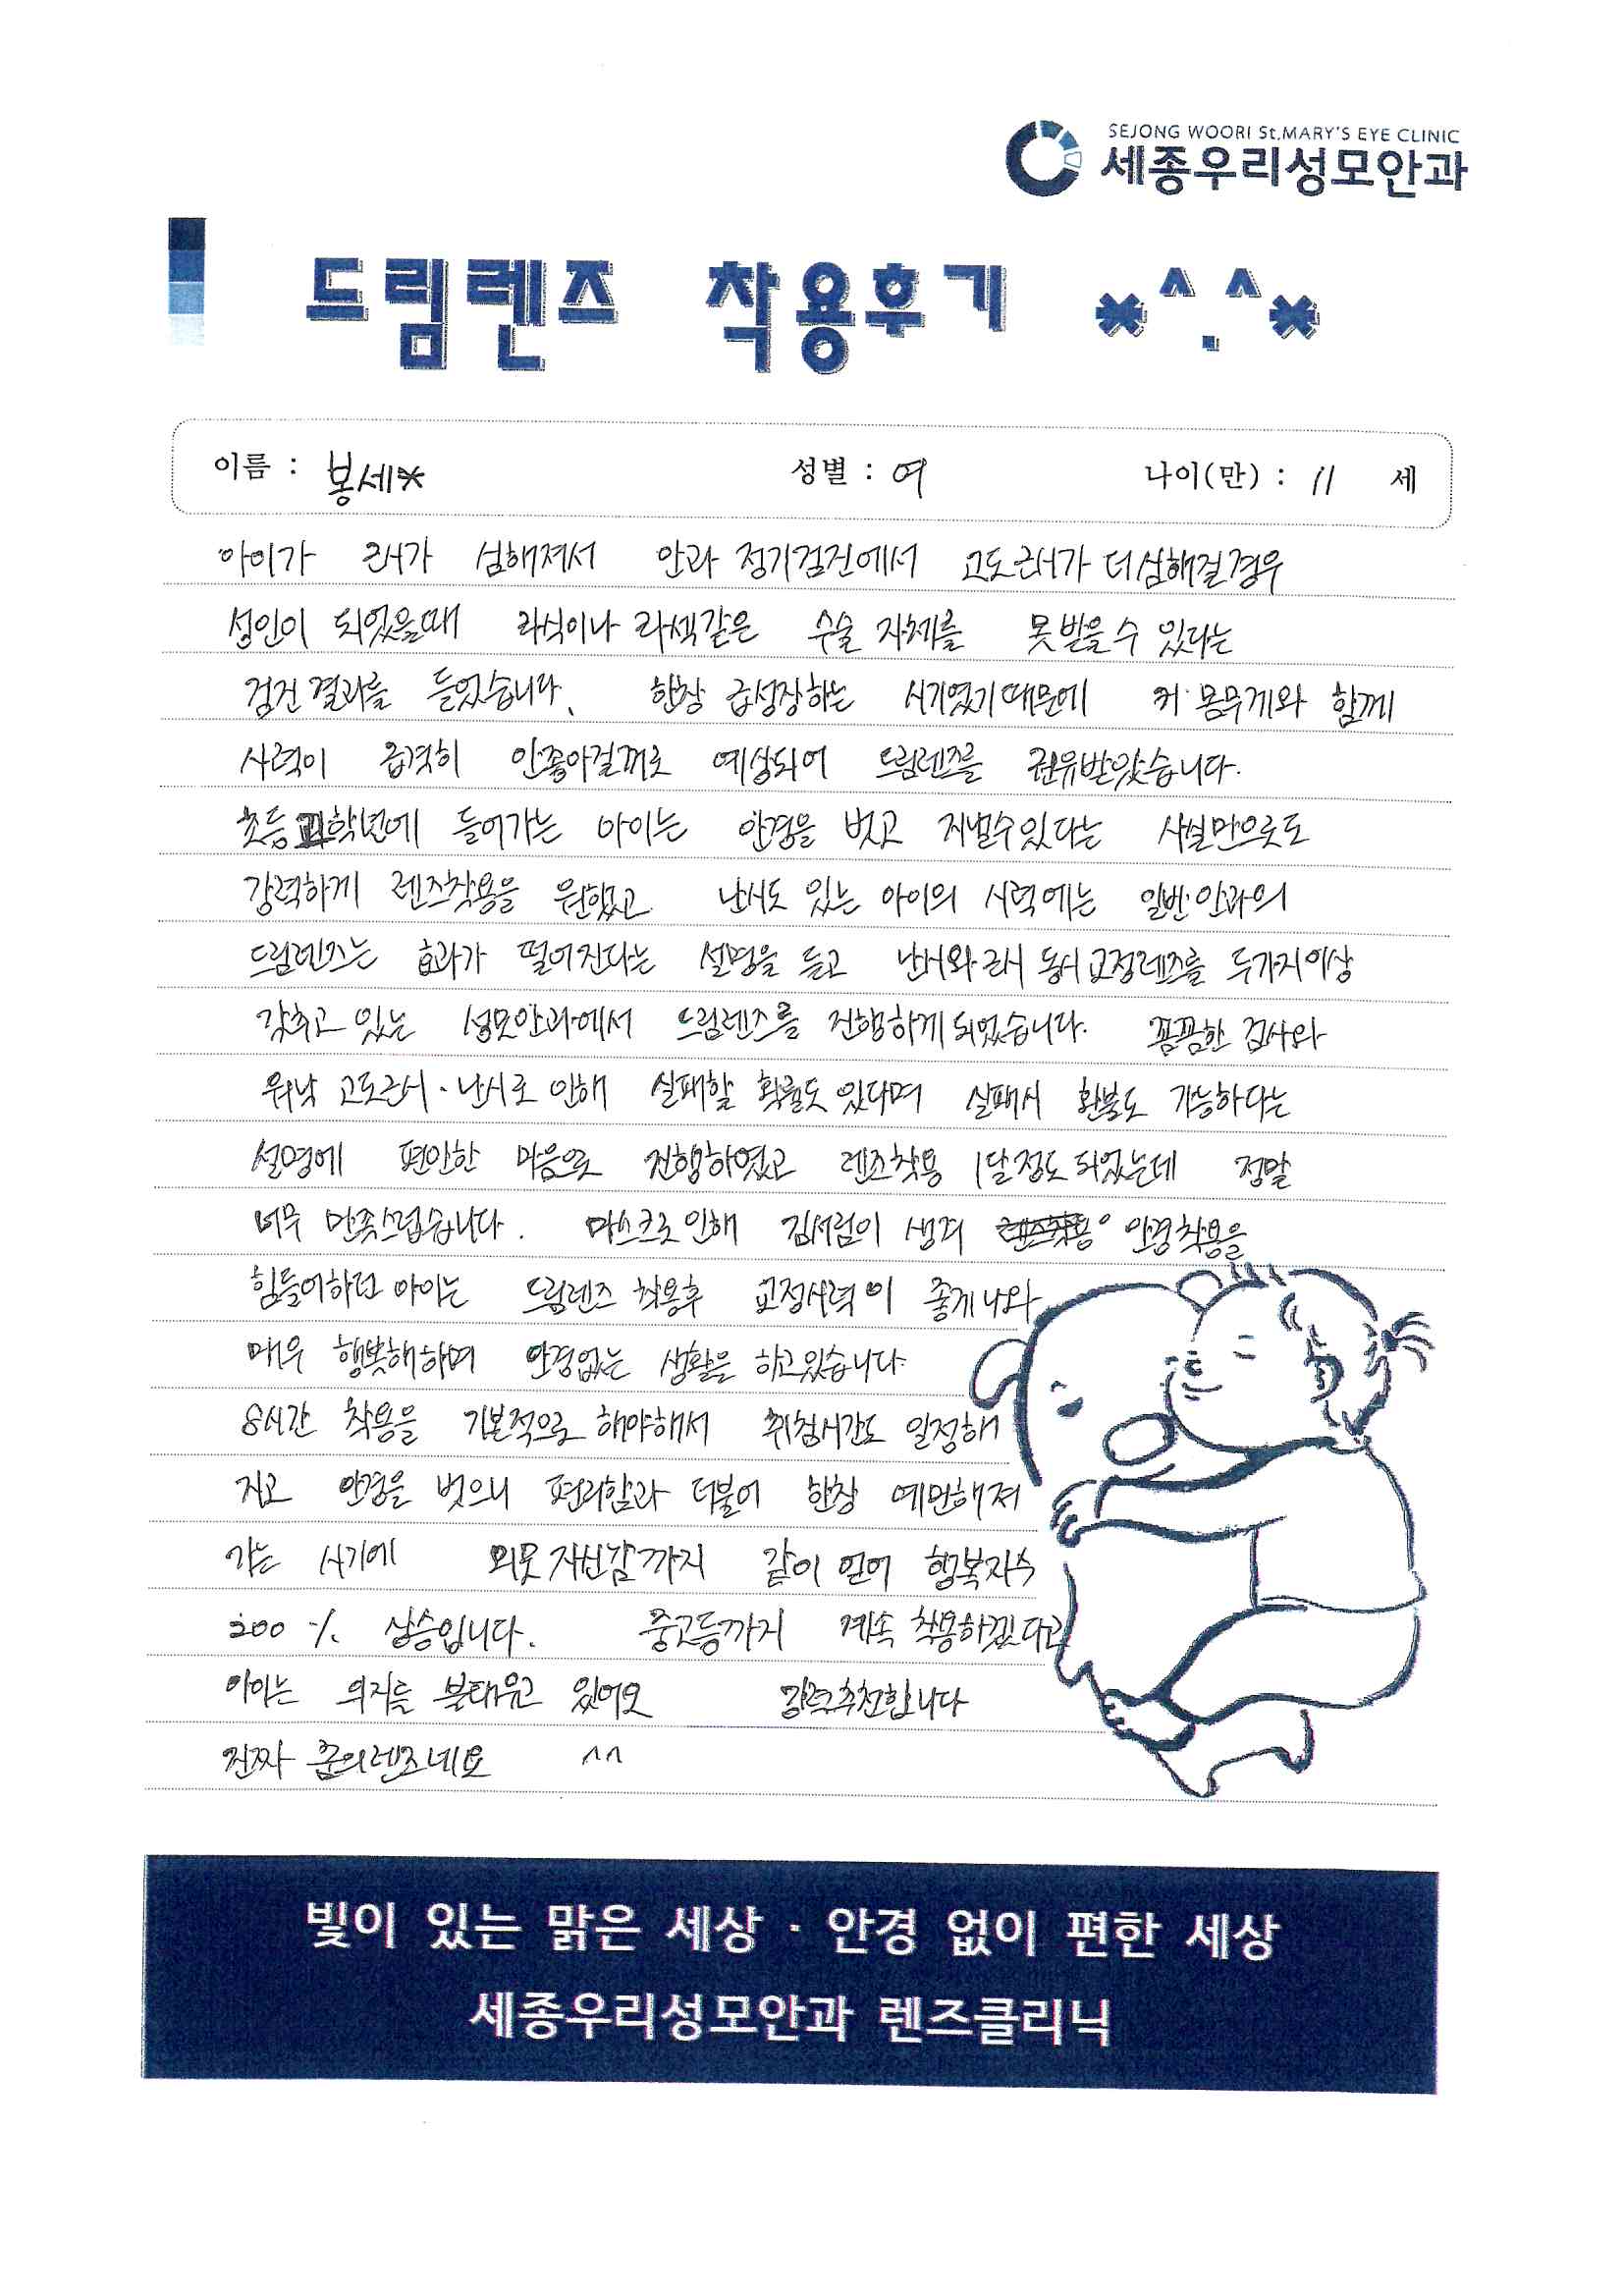 SEJONG WOORI St.MARY'S EYE CLINIC
세종우리성모안과
드림렌즈 착용후기 *^.^*
이름 : 봉세* 성별 : 여 나이(만) : 11 세
아이가 근시가 심해져서 안과 정기검진에서 고도근시가 더 심해질경우
성인이 되었을때 라식이나 라섹같은 수술 자체를 못받을수 있다는
검진결과를 들었습니다. 한창 급성장하는 시기였기때문에 키·몸무게와 함께
시력이 급격히 안좋아질꺼로 예상되어 드림렌즈를 권유받았습니다.
초등고학년에 들어가는 아이는 안경을 벗고 지낼수있다는 사실만으로도
강력하게 렌즈착용을 원했고 난시도 있는 아이의 시력에는 일반안과의
드림렌즈는 효과가 떨어진다는 설명을 듣고 난시와 근시 동시교정렌즈를 두가지이상
갖추고 있는 성모안과에서 드림렌즈를 진행하게되었습니다. 꼼꼼한 검사와
워낙 고도근시·난시로 인해 실패할 확률도 있다며 실패시 환불도 가능하다는
설명에 편안한 마음으로 진행하였고 렌즈착용 1달정도 되었는데 정말
너무 만족스럽습니다. 마스크로 인해 김서림이 생겨 안경착용을
힘들어하던 아이는 드림렌즈 착용후 교정시력이 좋게나와
매우 행복해하며 안경없는 생활을 하고있습니다.
8시간 착용을 기본적으로 해야해서 취침시간도 일정해
지고 안경을 벗으니 편리함과 더불어 한창 예민해져
가는 시기에 외모자신감까지 같이 얻어 행복지수
200 % 상승입니다. 중고등까지 계속 착용하겠다고
아이는 의지를 불태우고 있어요 강력추천합니다
진짜 꿈의렌즈네요 ^^
빛이 있는 맑은 세상 · 안경 없이 편한 세상
세종우리성모안과 렌즈클리닉